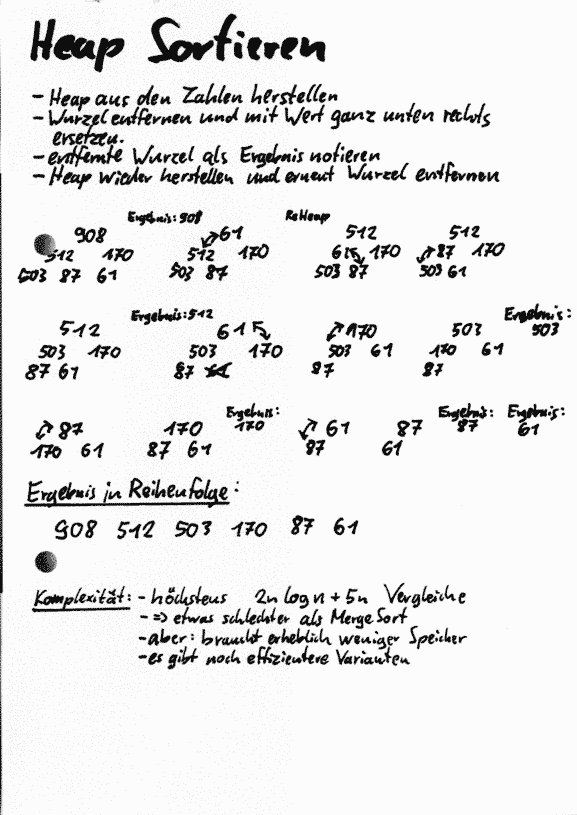 Heap Sortieren
- Heap aus den Zahlen herstellen
- Wurzel entfernen und mit Wert ganz unten rechts
ersetzen.
- entfernte Wurzel als Ergebnis notieren
- Heap wieder herstellen und erneut Wurzel entfernen
Ergebnis: 908 ReHeap
908 61 512 512
512 170 512 170 61 170 87 170
503 87 61 503 87 503 87 503 61
Ergebnis: 512 Ergebnis:
512 61 170 503 503
503 170 503 170 503 61 170 61
87 61 87 61 87 87
Ergebnis: Ergebnis: Ergebnis:
87 170 170 61 87 87 61
170 61 87 61 87 61
Ergebnis in Reihenfolge:
908 512 503 170 87 61
Komplexität: - höchstens 2n log n + 5n Vergleiche
- => etwas schlechter als MergeSort
- aber: braucht erheblich weniger Speicher
- es gibt noch effizientere Varianten